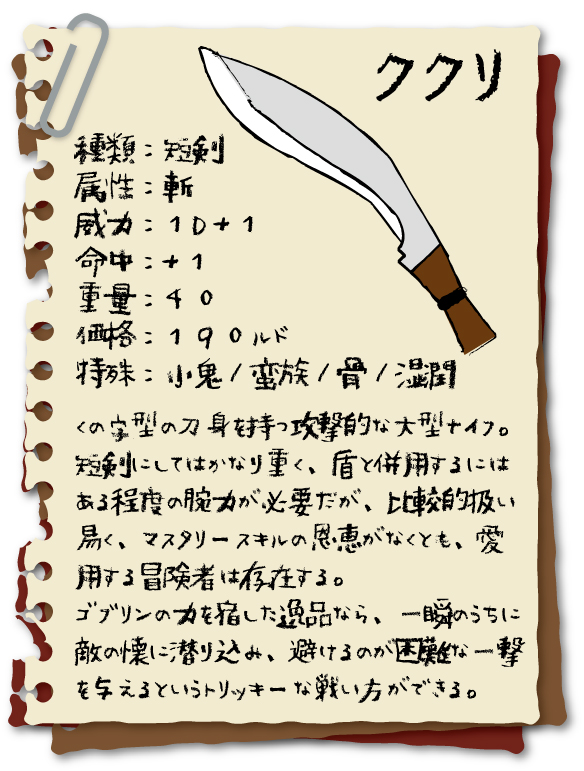 ククリ
種類：短剣
属性：斬
威力：１Ｄ＋１
命中：＋１
重量：４０
価格：１９０ルド
特殊：小鬼/蛮族/骨/湿潤
くの字型の刀身を持つ攻撃的な大型ナイフ。
短剣にしてはかなり重く、盾と併用するには
ある程度の腕力が必要だが、比較的扱い
易く、マスタリースキルの恩恵がなくとも、愛
用する冒険者は存在する。
ゴブリンの力を宿した逸品なら、一瞬のうちに
敵の懐に潜り込み、避けるのが困難な一撃
を与えるというトリッキーな戦い方ができる。